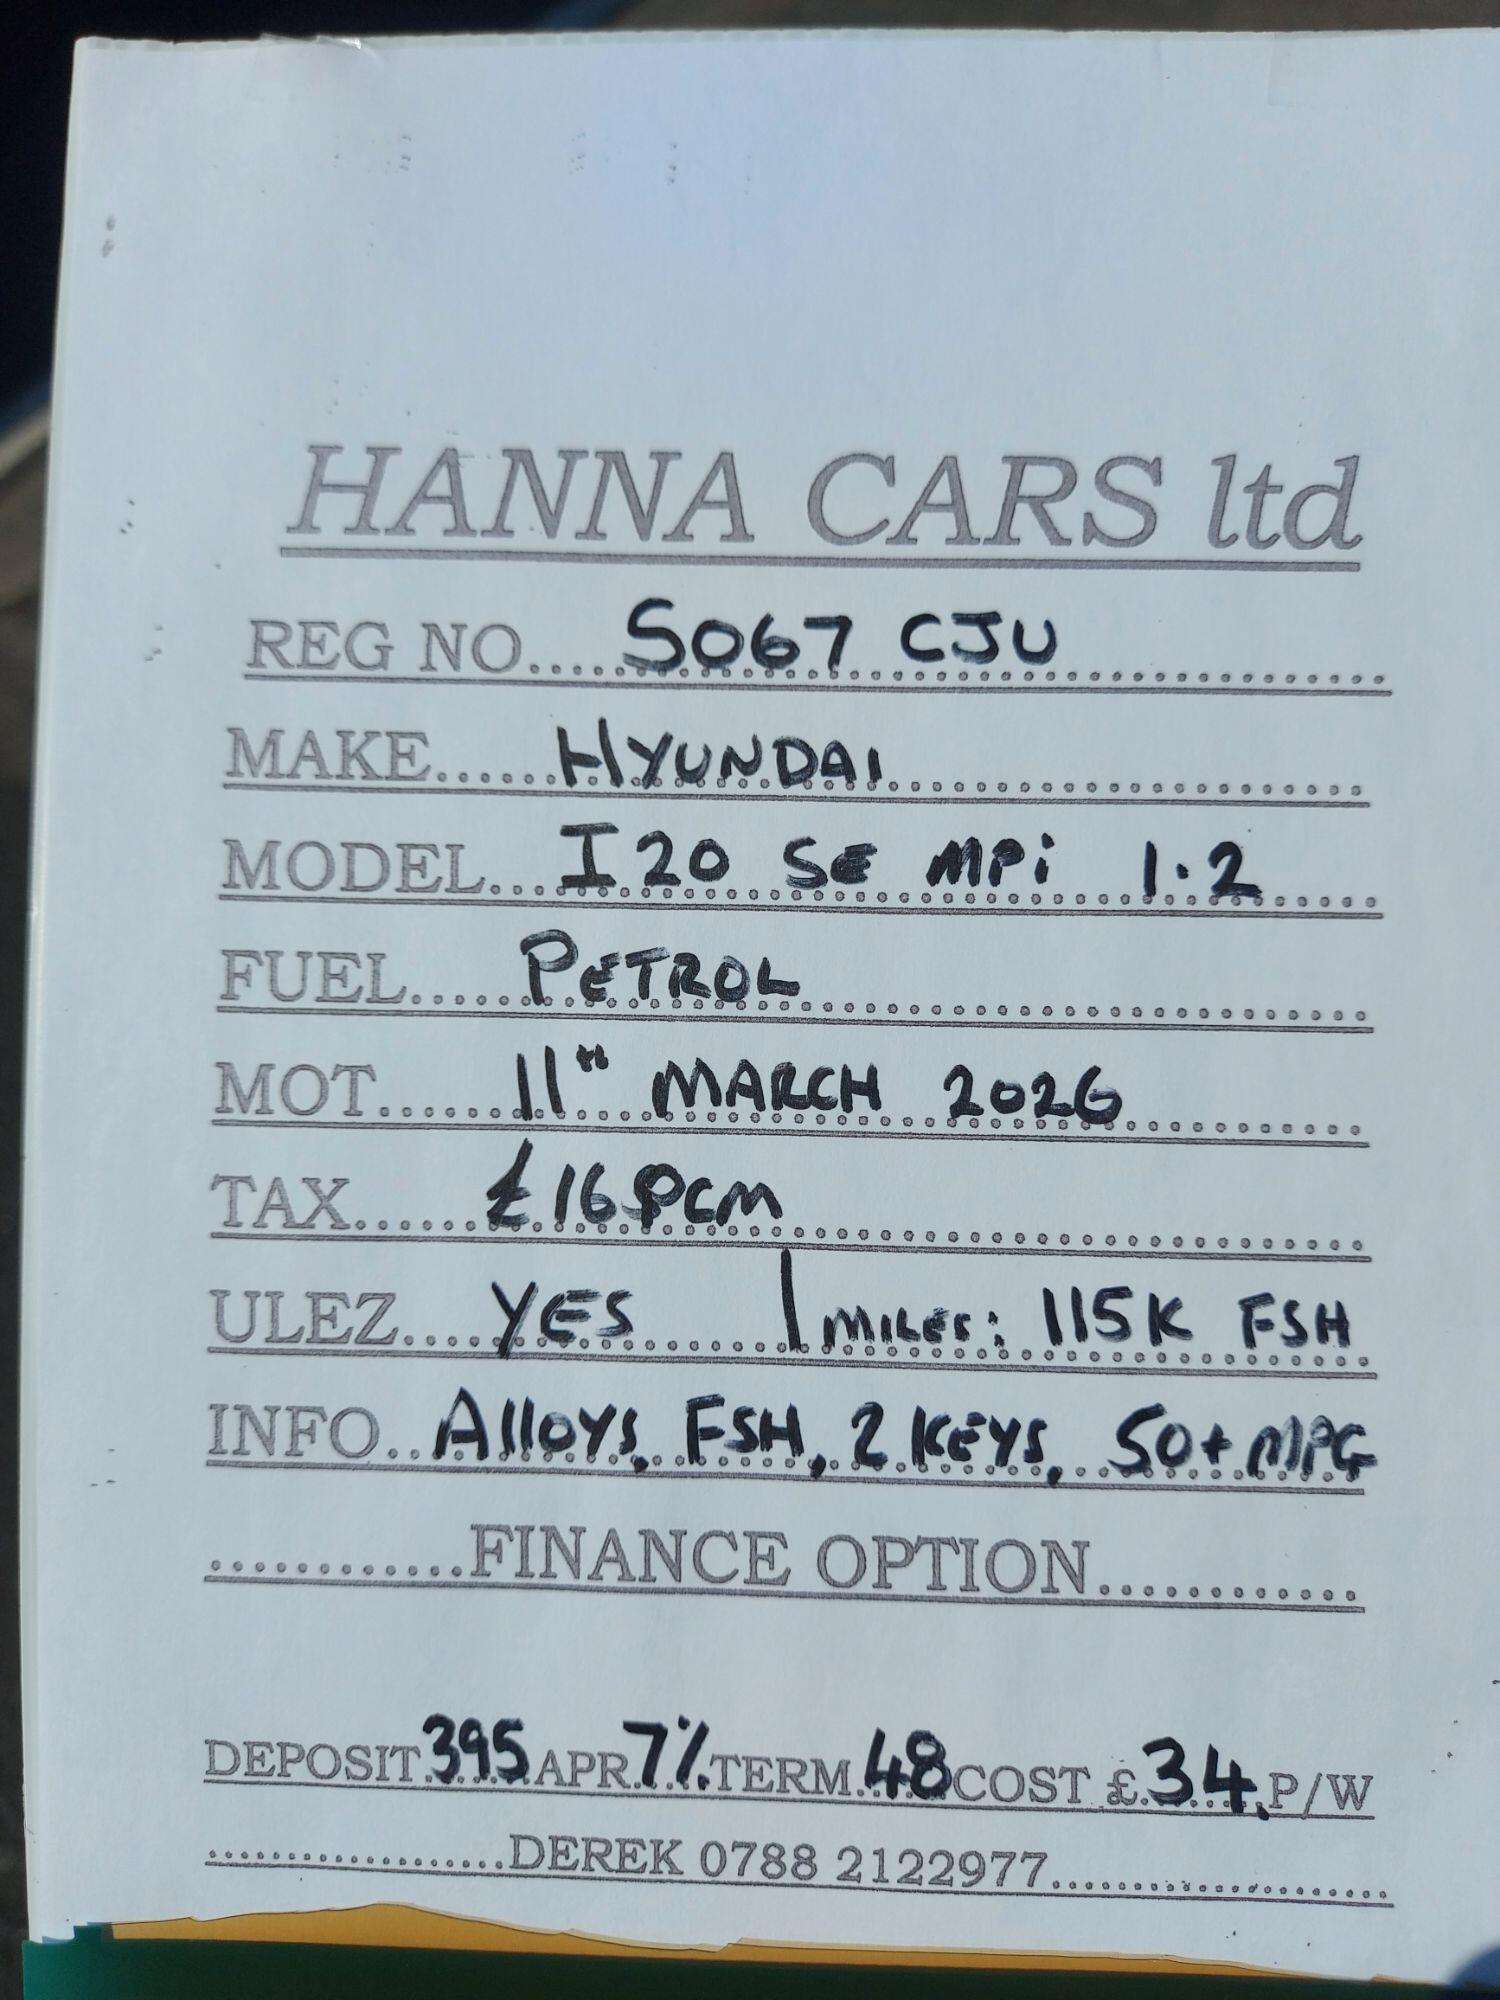 HANNA CARS ltd
REG NO.....SO67 CJU
MAKE......HYUNDAI
MODEL...I20 SE MPi 1.2
FUEL......PETROL
MOT......11TH MARCH 2026
TAX......£16 PCM
ULEZ....YES | MILES: 115K FSH
INFO..Alloys, FSH, 2 KEYS, 50+ MPG
............FINANCE OPTION............
DEPOSIT 395 APR 7% TERM 48 COST £ 34 P/W
..................DEREK 0788 2122977..................